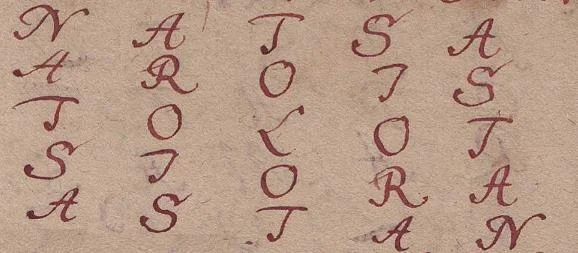 N A T S A
A R O I S
T O L O T
S I O R A
A S T A N